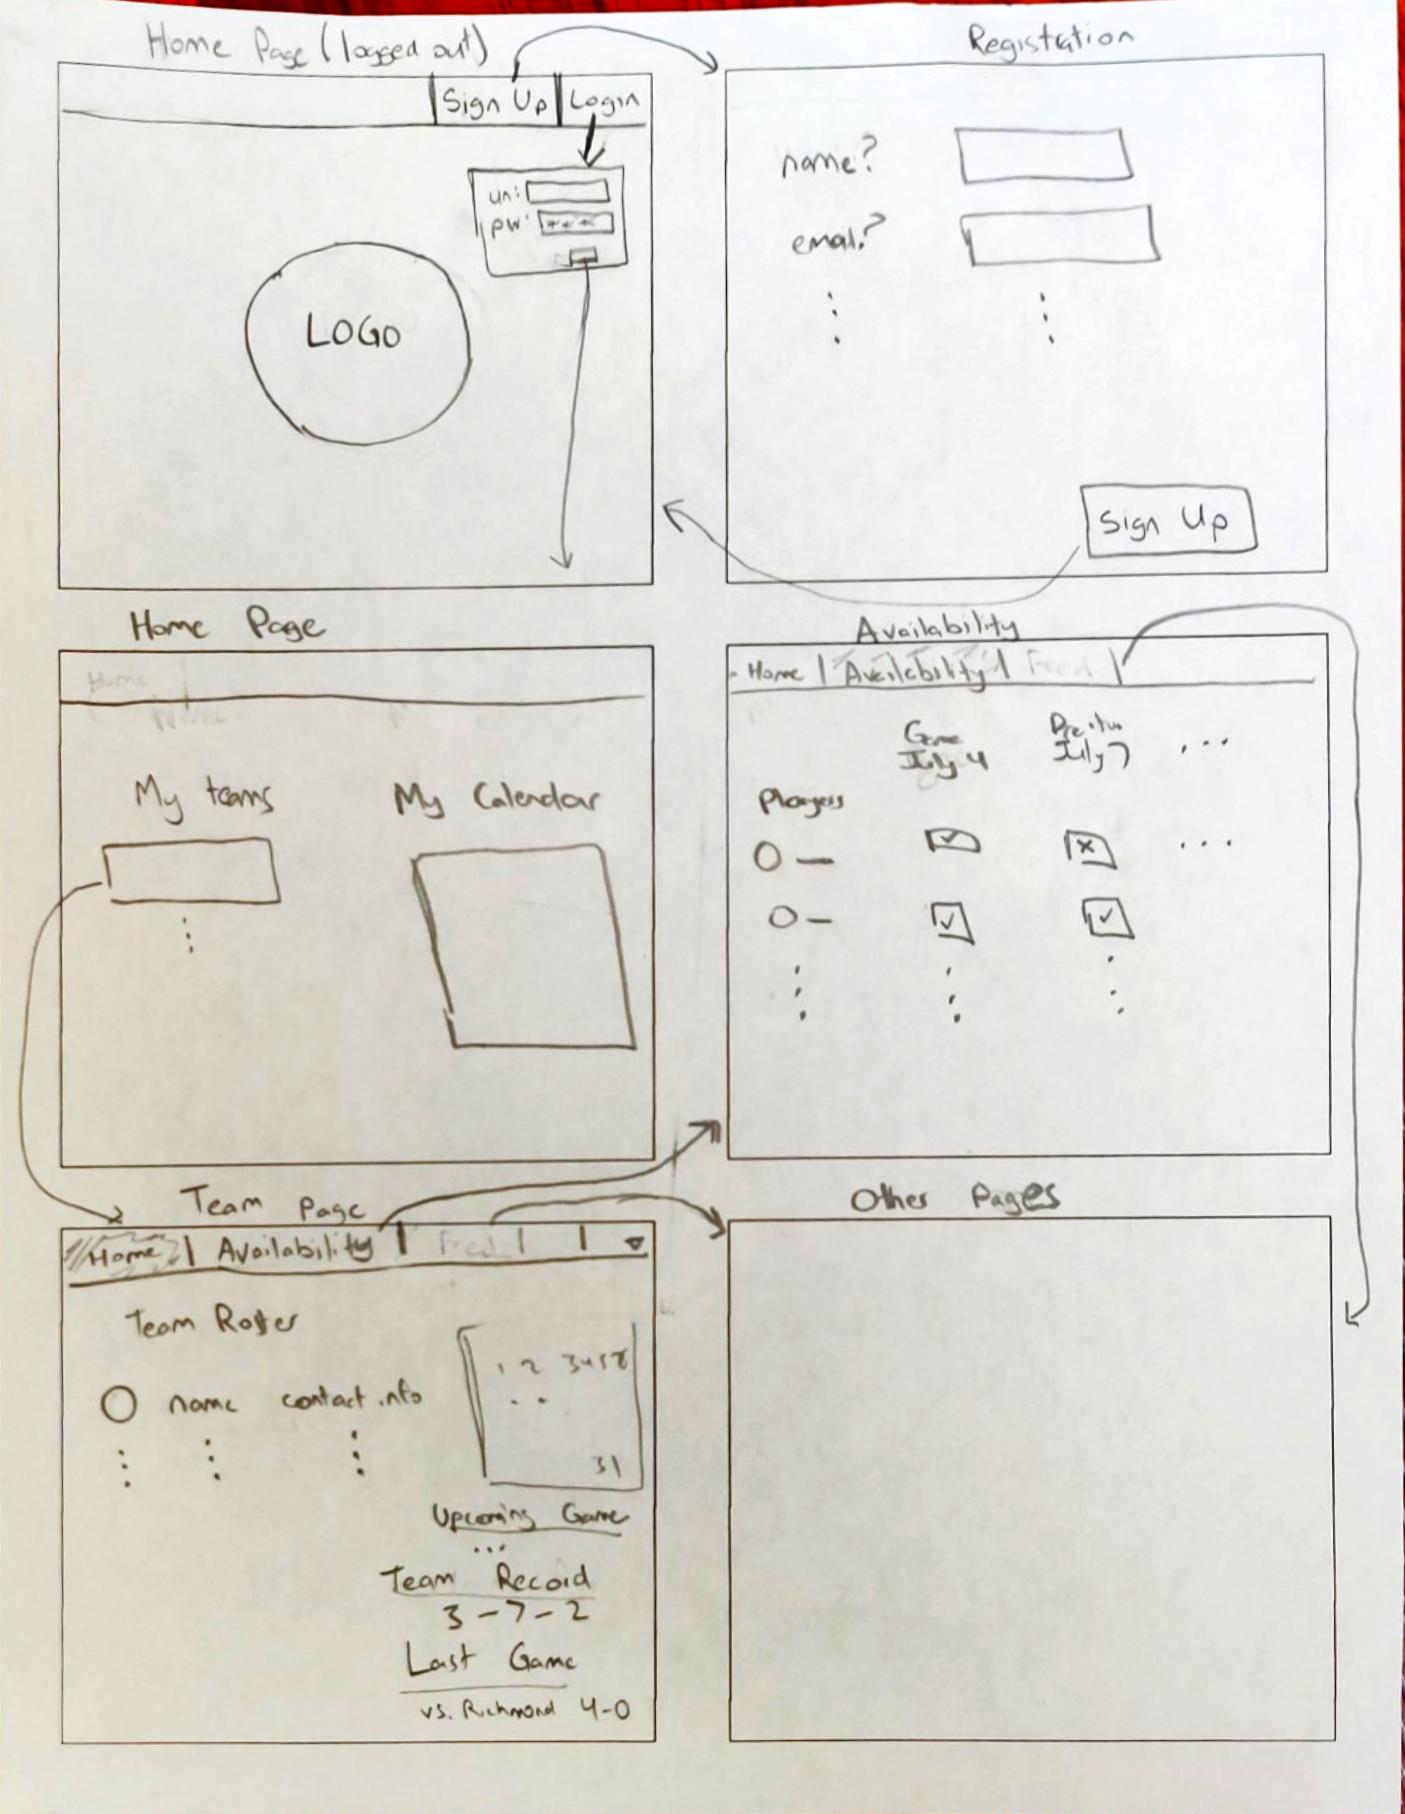 Home Page (logged out)
Sign Up Login
un:
pw: ***
LOGO
Registration
name?
email?
Sign Up
Home Page
Home
My teams My Calendar
Availability
Home | Availability |
Game
July 4
July 7
...
Players
...
Team Page
Home | Availability |
Team Roster
name contact info
1 2 3 4 5
31
Upcoming Game
...
Team Record
3-7-2
Last Game
vs. Richmond 4-0
Other Pages